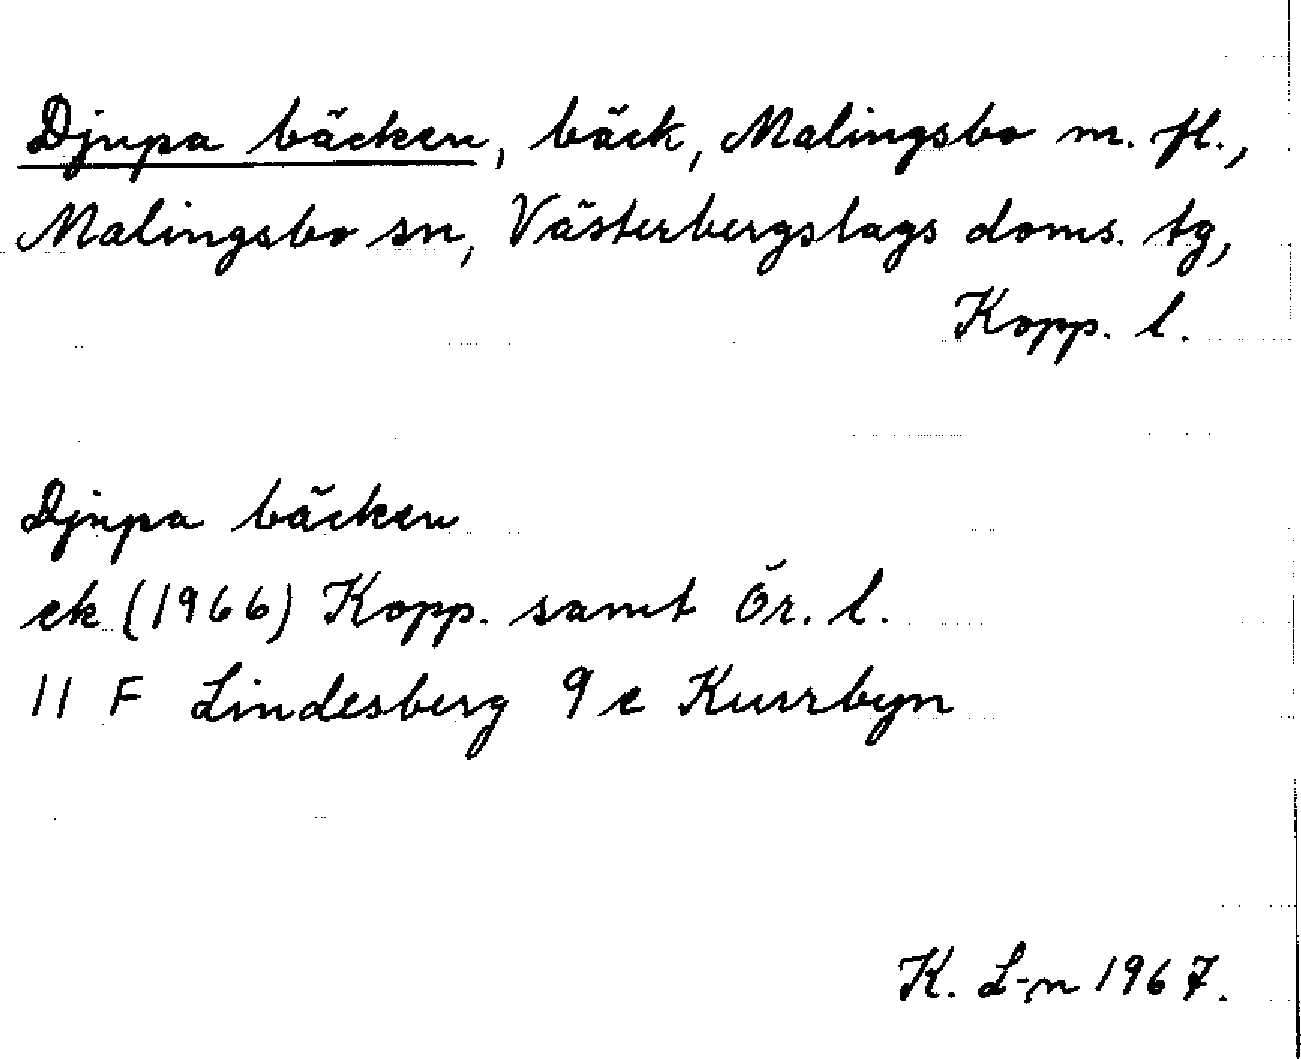 Djupa bäcken, bäck, Malingsbo m. fl.,
Malingsbo sn, Västerbergslags doms. tg,
Kopp. l.
Djupa bäcken
ek (1966) Kopp. samt Ör. l.
11 F Lindesberg 9 e Kurrbyn
K. L-n 1967.